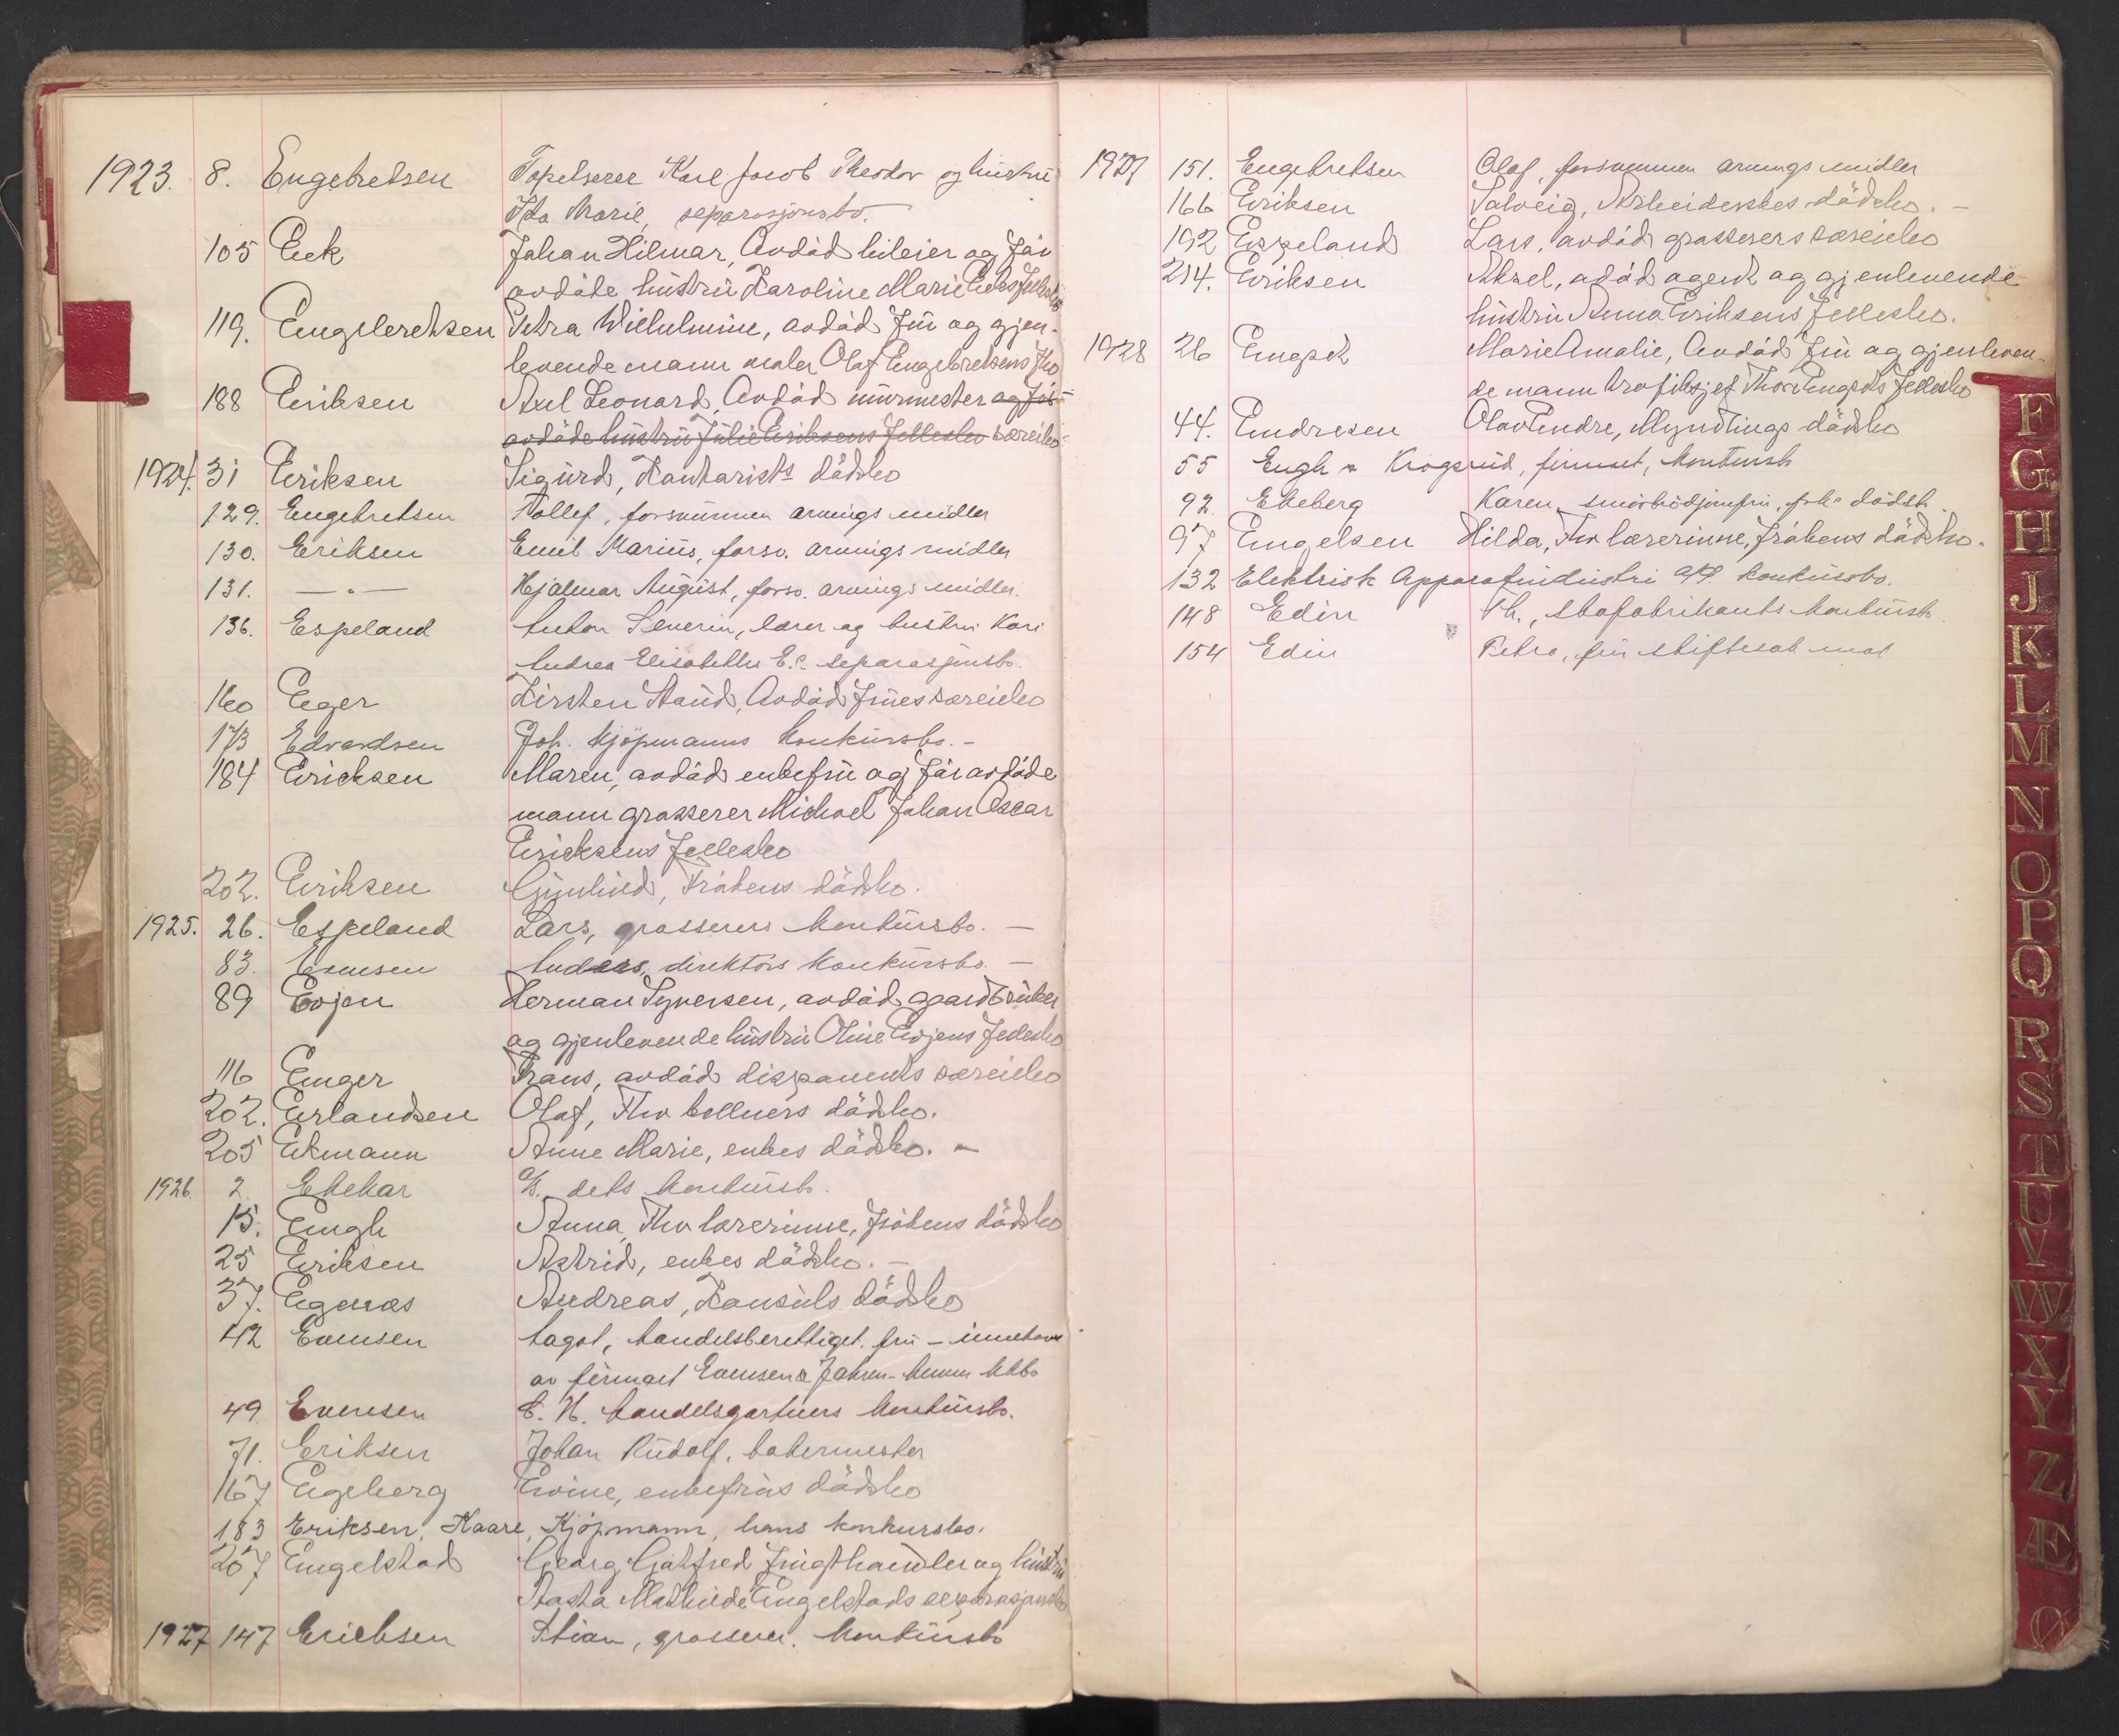 1923. 8. Engebretsen Tapetserer Karl Jacob Theodor og hustru
Ida Marie, separasjonsbo.
105 Eek Johan Hilmar, Avdød bileier og før
avdøde hustru Karoline Marie Eeks fellesbo
119. Engebretsen Petra Wilhelmine, avdød fru og gjen-
levende mann maler Olaf Engebretsens fbo
188 Eriksen Axel Leonard, Avdød murmester og før
avdøde hustru Julie Eriksens fellesbo særeiebo
1924. 31 Eriksen Sigurd, Kontorists dödsbo
129. Engebretsen Tollef, forsvunnen arvings midler
130. Eriksen Emil Marius, forsv. arvings midler
131. — „ — Hjalmar August, forsv. arvings midler.
136. Espeland Anton Severin, lærer og hustru Kari
Andrea Elisabeths E.s separasjonsbo.
160 Eger Kirsten Maud, Avdöd frues særeiebo
173 Edvardsen Joh. kjöpmanns konkursbo. –
184 Ericksen Maren, avdöd enkefru og før avdøde
mann grosserer Michael Johan Oscar
Ericksens fellesbo
202. Eriksen Gunhild, Frökens dödsbo.
1925. 26. Espeland Lars, grosserers konkursbo. —
83. Evensen Anders, direktörs konkursbo. —
89 Evjen Herman Syversen, avdöd gaardbruker
og gjenlevende hustru Oline Evjens fellesbo
116 Enger Frans, avdöd disponents særeiebo
202. Erlandsen Olaf, Fhv tollners dödsbo.
205 Ekmann Anne Marie, enkes dödsbo. –
1926. 2. Ekekar A/S. dets konkursb.
15. Engh Anna, Fhv lærerinne, frökens dödsbo
25 Eriksen Astrid, enkes dödsbo. –
37. Egenæs Andreas, Konsuls dödsbo
42 Evensen Aagot, handelsberettiget fru – innehaver
av firmaet Evensen & Jahren
49. Evensen E. H. handelsgartners konkursbo.
71. Eriksen Johan Rudolf, bakermester
167 Egeberg Evine, enkefrus dödsbo
183 Eriksen, Kaare, Kjöpmann, hans konkursbo.
207 Engelstad Georg Gotfred frugthandler og hustru
Aasta Mathilde Engelstads separasjonsbo
1927 147 Erichsen Stian, grosserer. konkursbo
1927 151. Engebretsen Olaf, forsvunnen arvings midler
166 Eriksen Solveig, Arbeiderskes dödsbo. –
192 Espeland Lars, avdöd grosserers særeiebo
214. Eriksen Aksel, adöd agent og gjenlevende
hustru Anna Eriksens fellesbo.
1928 26 Engset Marie Amalie, Avdöd fru og gjenleven-
de mann trafiksjef Thor Engsets fellesbo
44. Endresen Olav Endre, Myndtlings dödsbo
55 Engh & Krogsrud, firmaet, konkursb
92. Ekeberg Karen, smörbrödjomfru, frk. dödsb.
97 Engelsen Hilda, Fhv lærerinne, frökens dödsbo.
132 Elektrisk Apparatindustri A/S. konkursbo.
148 Edin Th., skofabrikants konkursb
154 Edin Petra, fru skiftesak mot
F
G
H
J
K
L
M
N
O
P
Q
R
S
T
U
V
W
X
Y
Z
Æ
Ø